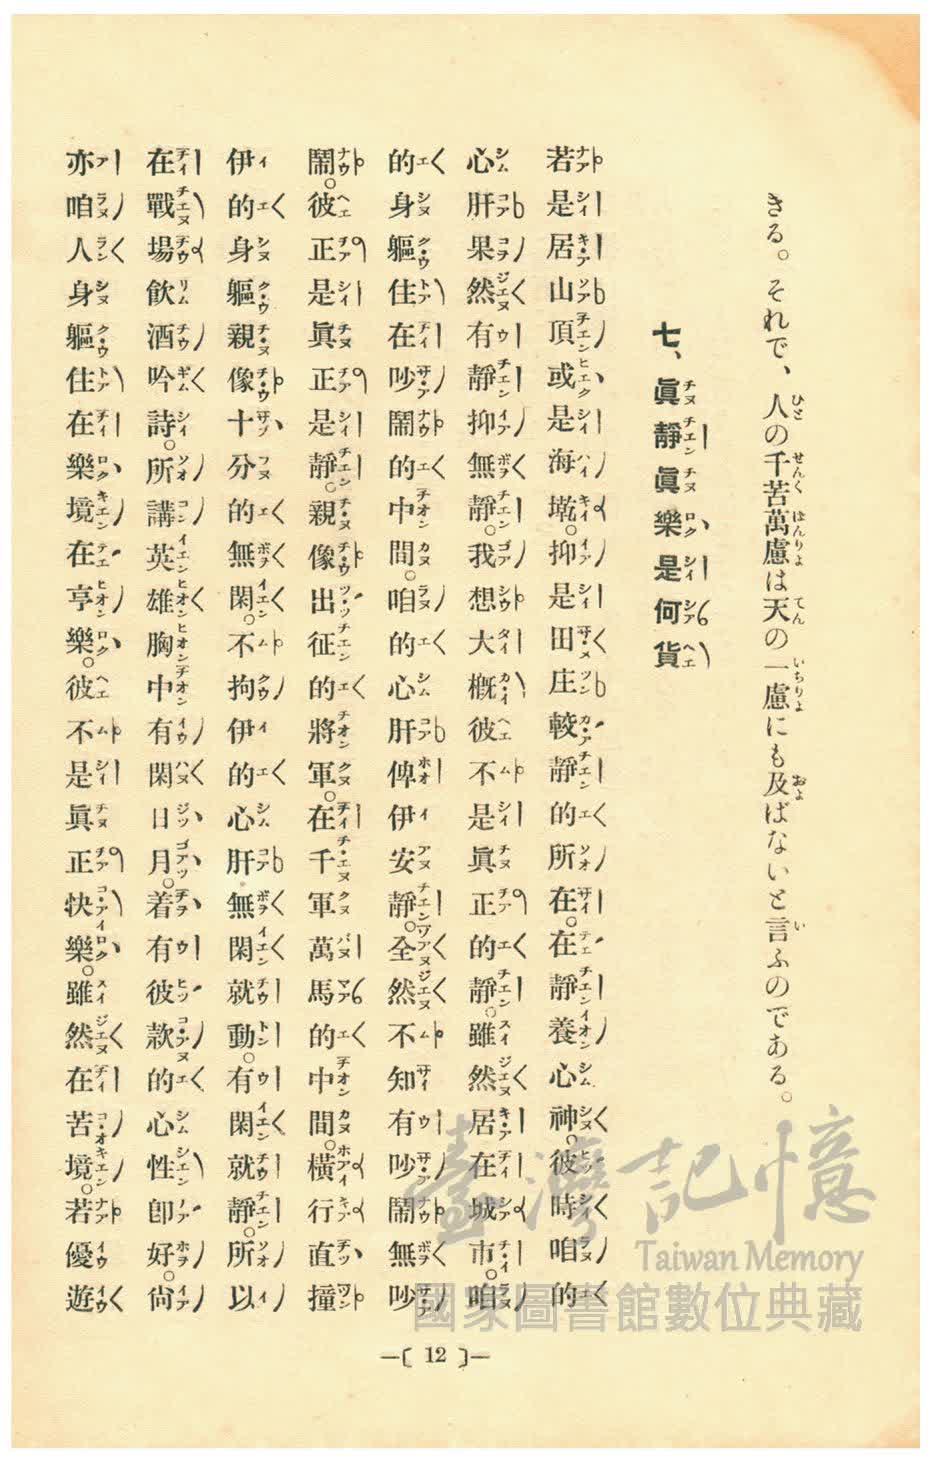 きる。それで、人の千苦萬慮は天の一慮にも及ばないと言ふのである。
七、眞靜眞樂是何貨
若是居山頂或是海墘抑是田庄較靜的所在。在靜養心神。彼時咱的
心肝果然有靜抑無靜。我想大概彼不是眞正的靜。雖然居在城市。咱
的身軀住在吵鬧的中間。咱的心肝俾伊安靜。全然不知有吵鬧無吵
鬧。彼正是眞正是靜。親像出征的將軍。在千軍萬馬的中間。橫行直撞
伊的身軀親像十分的無閑。不拘伊的心肝無閑就動。有閑就靜。所以
在戰場飮酒吟詩。所講英雄胸中有閑日月。着有彼款的心性卽好。尙
亦咱人身軀住在樂境在亨樂。彼不是眞正快樂。雖然在苦境。若優遊
12
臺灣記憶
Taiwan Memory
國家圖書館數位典藏